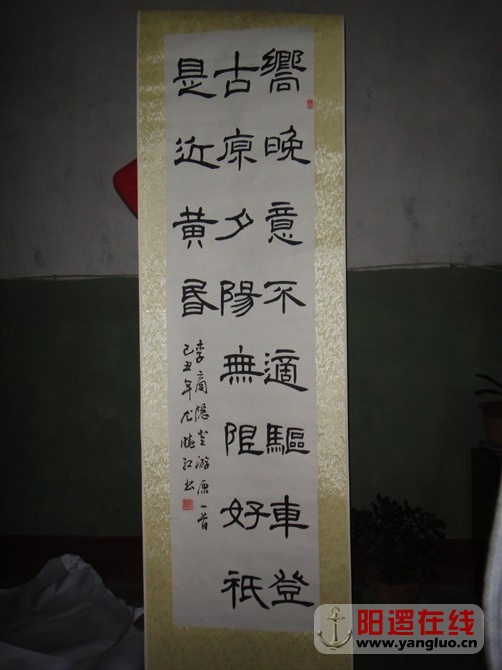 嚮晚意不適驅車登
古原夕陽無限好祇
是近黄昏
李商隱登游原一首
己丑年尤
书
阳逻在线
www.yangluo.cn